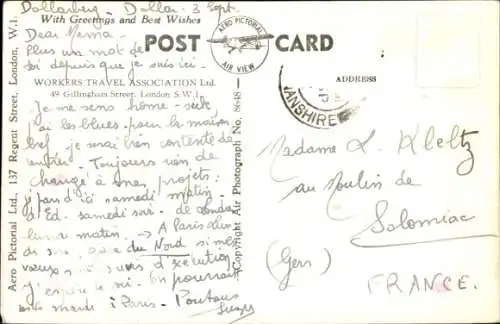 Dollarberg - Dollar. 3 Sept.
With Greetings and Best Wishes
Dear Mema
Plus un mot de
toi depuis que je suis ici.
WORKERS TRAVEL ASSOCIATION Ltd.
49 Gillingham Street, London S.W.1.
Je me sens home-sick,
j'ai les blues pour la maison
bref, je serai très contente de
rentrer - Toujours rien de
changé à mes projets:
Je pars d'ici samedi matin
d'Ed. samedi soir - de Londres
lundi matin. → A Paris lundi
du Nord si mes
vœux d'exécution
J'espère le
mardi à Paris -
Suzy
POST CARD
AERO PICTORIAL
AIR VIEW
ADDRESS
ANSHIRE
Madame L. Kleltz
au Moulin de
Solomiac
(Gers)
FRANCE.
Aero Pictorial Ltd., 137 Regent Street, London, W.1.
Copyright Air Photograph No.